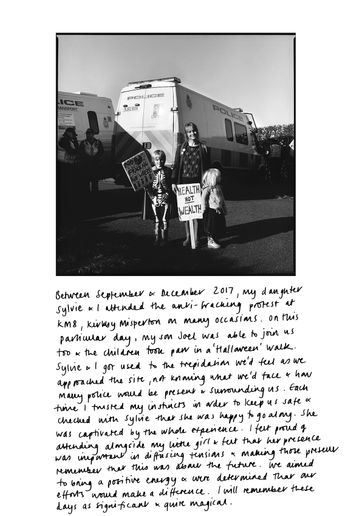 POLICE
POLICE
HEALTH
NOT
WEALTH
Between September & December 2017, my daughter
Sylvie & I attended the anti-fracking protest at
KM8, Kirby Misperton on many occasions. On this
particular day, my son Joel was able to join us
too & the children took part in a 'Halloween' walk.
Sylvie & I got used to the trepidation we'd feel as we
approached the site, not knowing what we'd face & how
many police would be present & surrounding us. Each
time I trusted my instincts in order to keep us safe &
checked with Sylvie that she was happy to go along. She
was captivated by the whole experience. I felt proud of
attending alongside my little girl & felt that her presence
was important in diffusing tensions & making those present
remember that this was about the future. We aimed
to bring a positive energy & were determined that our
efforts would make a difference. I will remember these
days as significant & quite magical.